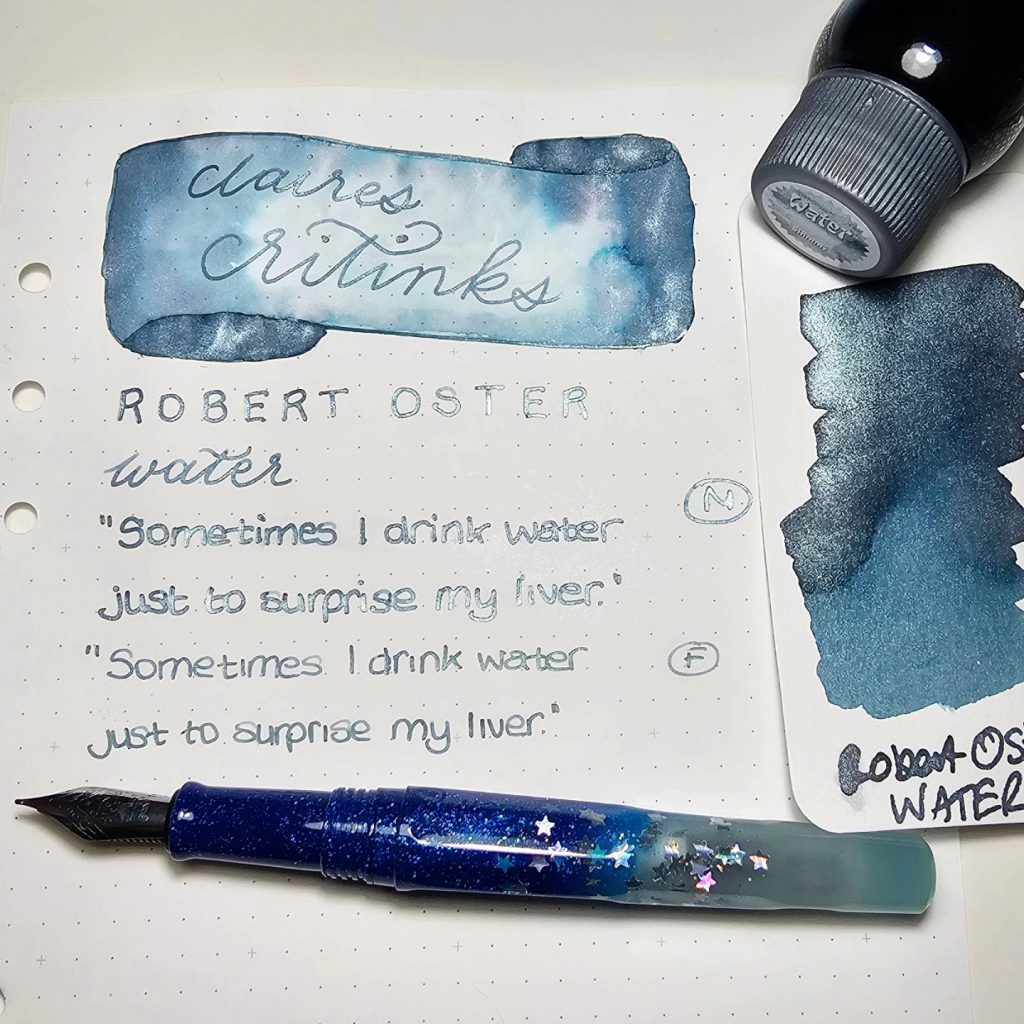 claires
critinks
Water
ROBERT OSTER
water
"Sometimes I drink water
N
just to surprise my liver."
"Sometimes I drink water
F
just to surprise my liver."
Robert OS
WATER